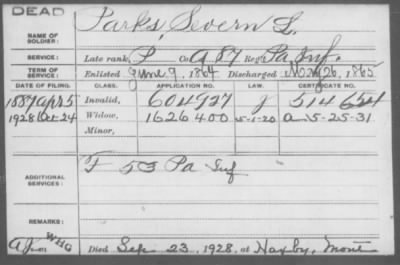 DEAD
NAME OF SOLDIER: Parks, Severn L.
SERVICE: Late rank, P Co. A 87 Reg't Pa Inf.
TERM OF SERVICE: Enlisted June 9, 1864 Discharged 26, 1865
DATE OF FILING. CLASS. APPLICATION NO. LAW. CERTIFICATE NO.
1887 Apr 5 Invalid, 604927 J 514654
1928 Oct-24 Widow, 1626400 5-1-20 a 5-25-31
Minor,
ADDITIONAL SERVICES: F 53 Pa Inf
REMARKS:
WHG Died Sep. 23, 1928, at Haxby, Mont